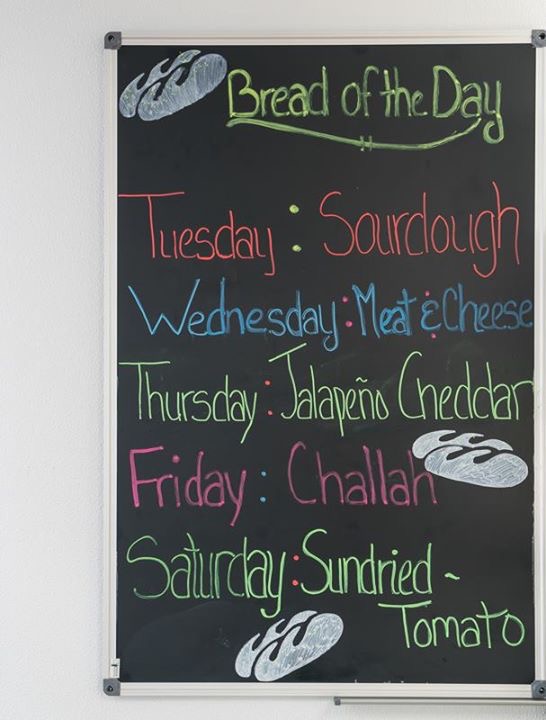 Bread of the Day
Tuesday: Sourdough
Wednesday: Meat & Cheese
Thursday: Jalapeño Cheddar
Friday: Challah
Saturday: Sundried -
Tomato